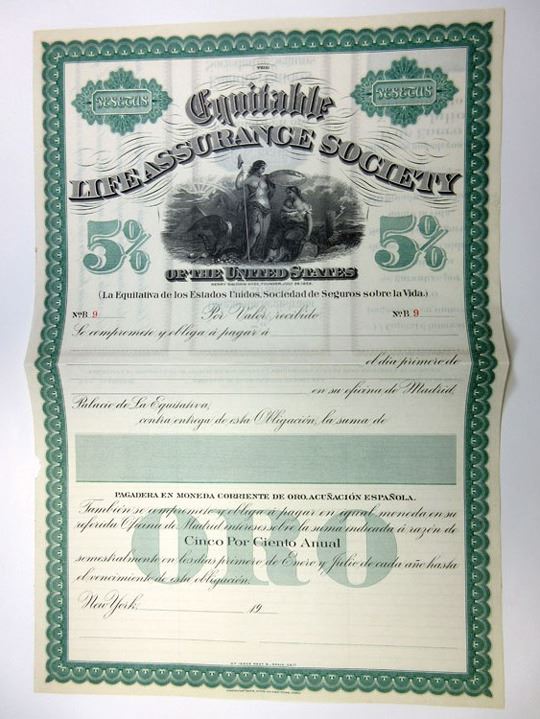 THE
PESETAS PESETAS
Equitable
LIFE ASSURANCE SOCIETY
5% 5%
OF THE UNITED STATES
HENRY BALDWIN HYDE, FOUNDER, JULY 26, 1859.
(La Equitativa de los Estados Unidos, Sociedad de Seguros sobre la Vida.)
Nº B 9 Por Valor recibido Nº B 9
Se compromete y obliga á pagar á
el dia primero de
en su oficina de Madrid,
Palacio de La Equitativa,
contra entrega de esta Obligación, la suma de
PAGADERA EN MONEDA CORRIENTE DE ORO, ACUÑACIÓN ESPAÑOLA.
También se compromete y obliga á pagar en igual moneda en su
referida Oficina de Madrid intereses sobre la suma indicada á razón de
Cinco Por Ciento Anual
ORO
semestralmente en los dias primero de Enero y Julio de cada año hasta
el vencimiento de esta obligación.
New York, 19